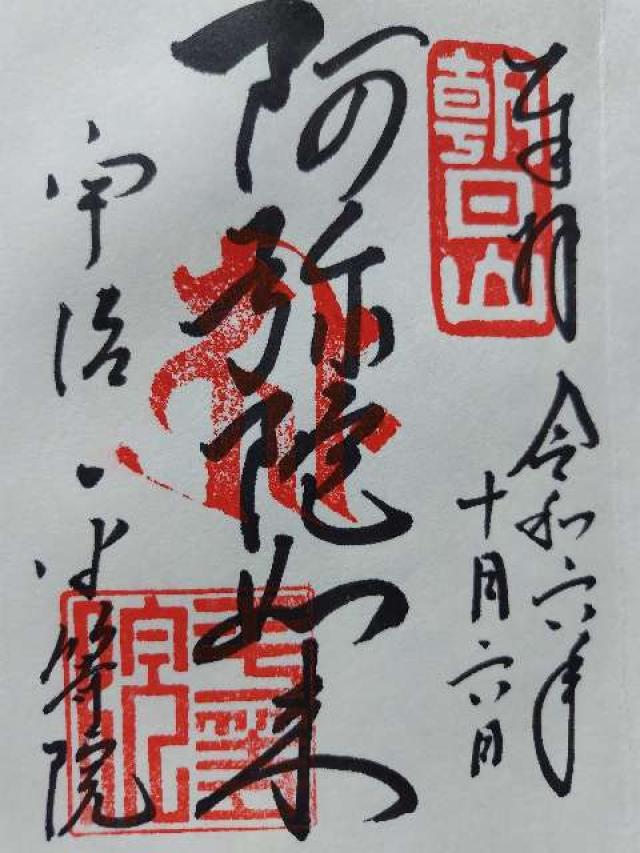 奉拝
朝日山
令和六年
十月六日
阿弥陀如来
宇治
平等院
平等院